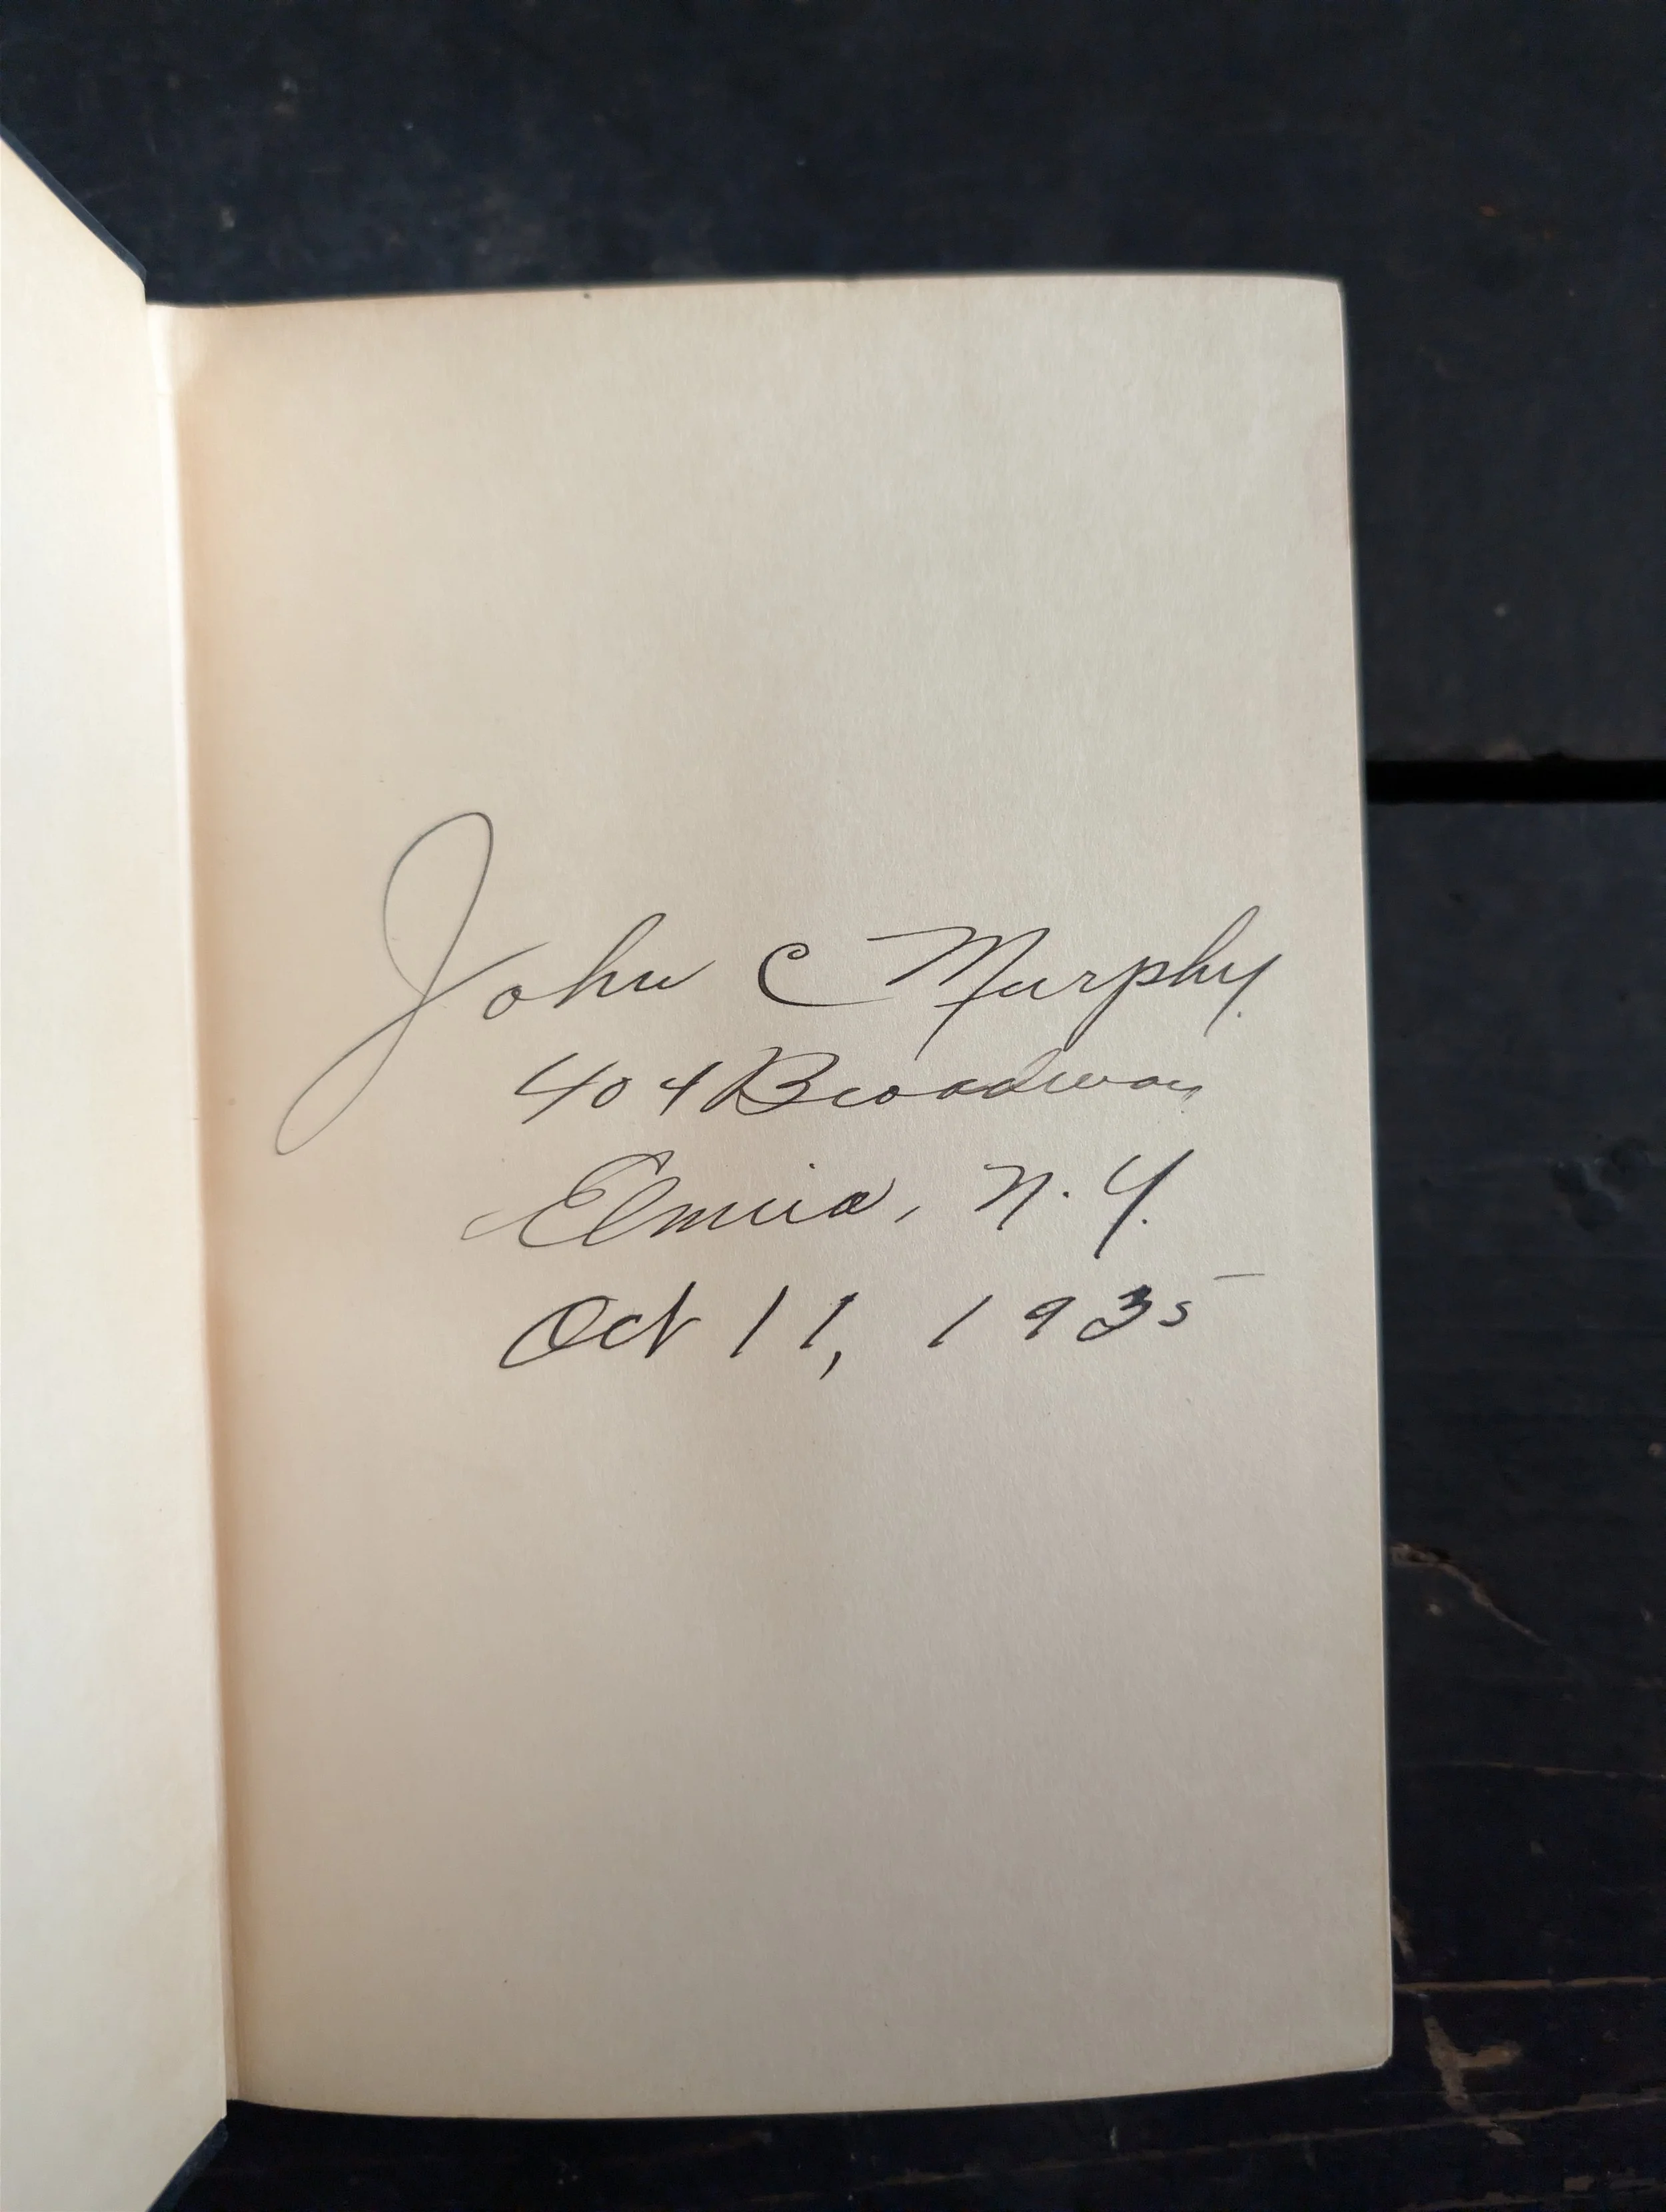 John C Murphy.
404 Broadway
Elmira, N.Y.
Oct 11, 1935